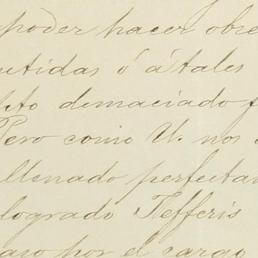 poder hacer obse
etidas ó á tales
lto demaciado f
Pero como U. nos
llenado perfectam
logrado Jefferis
aso por el cargo